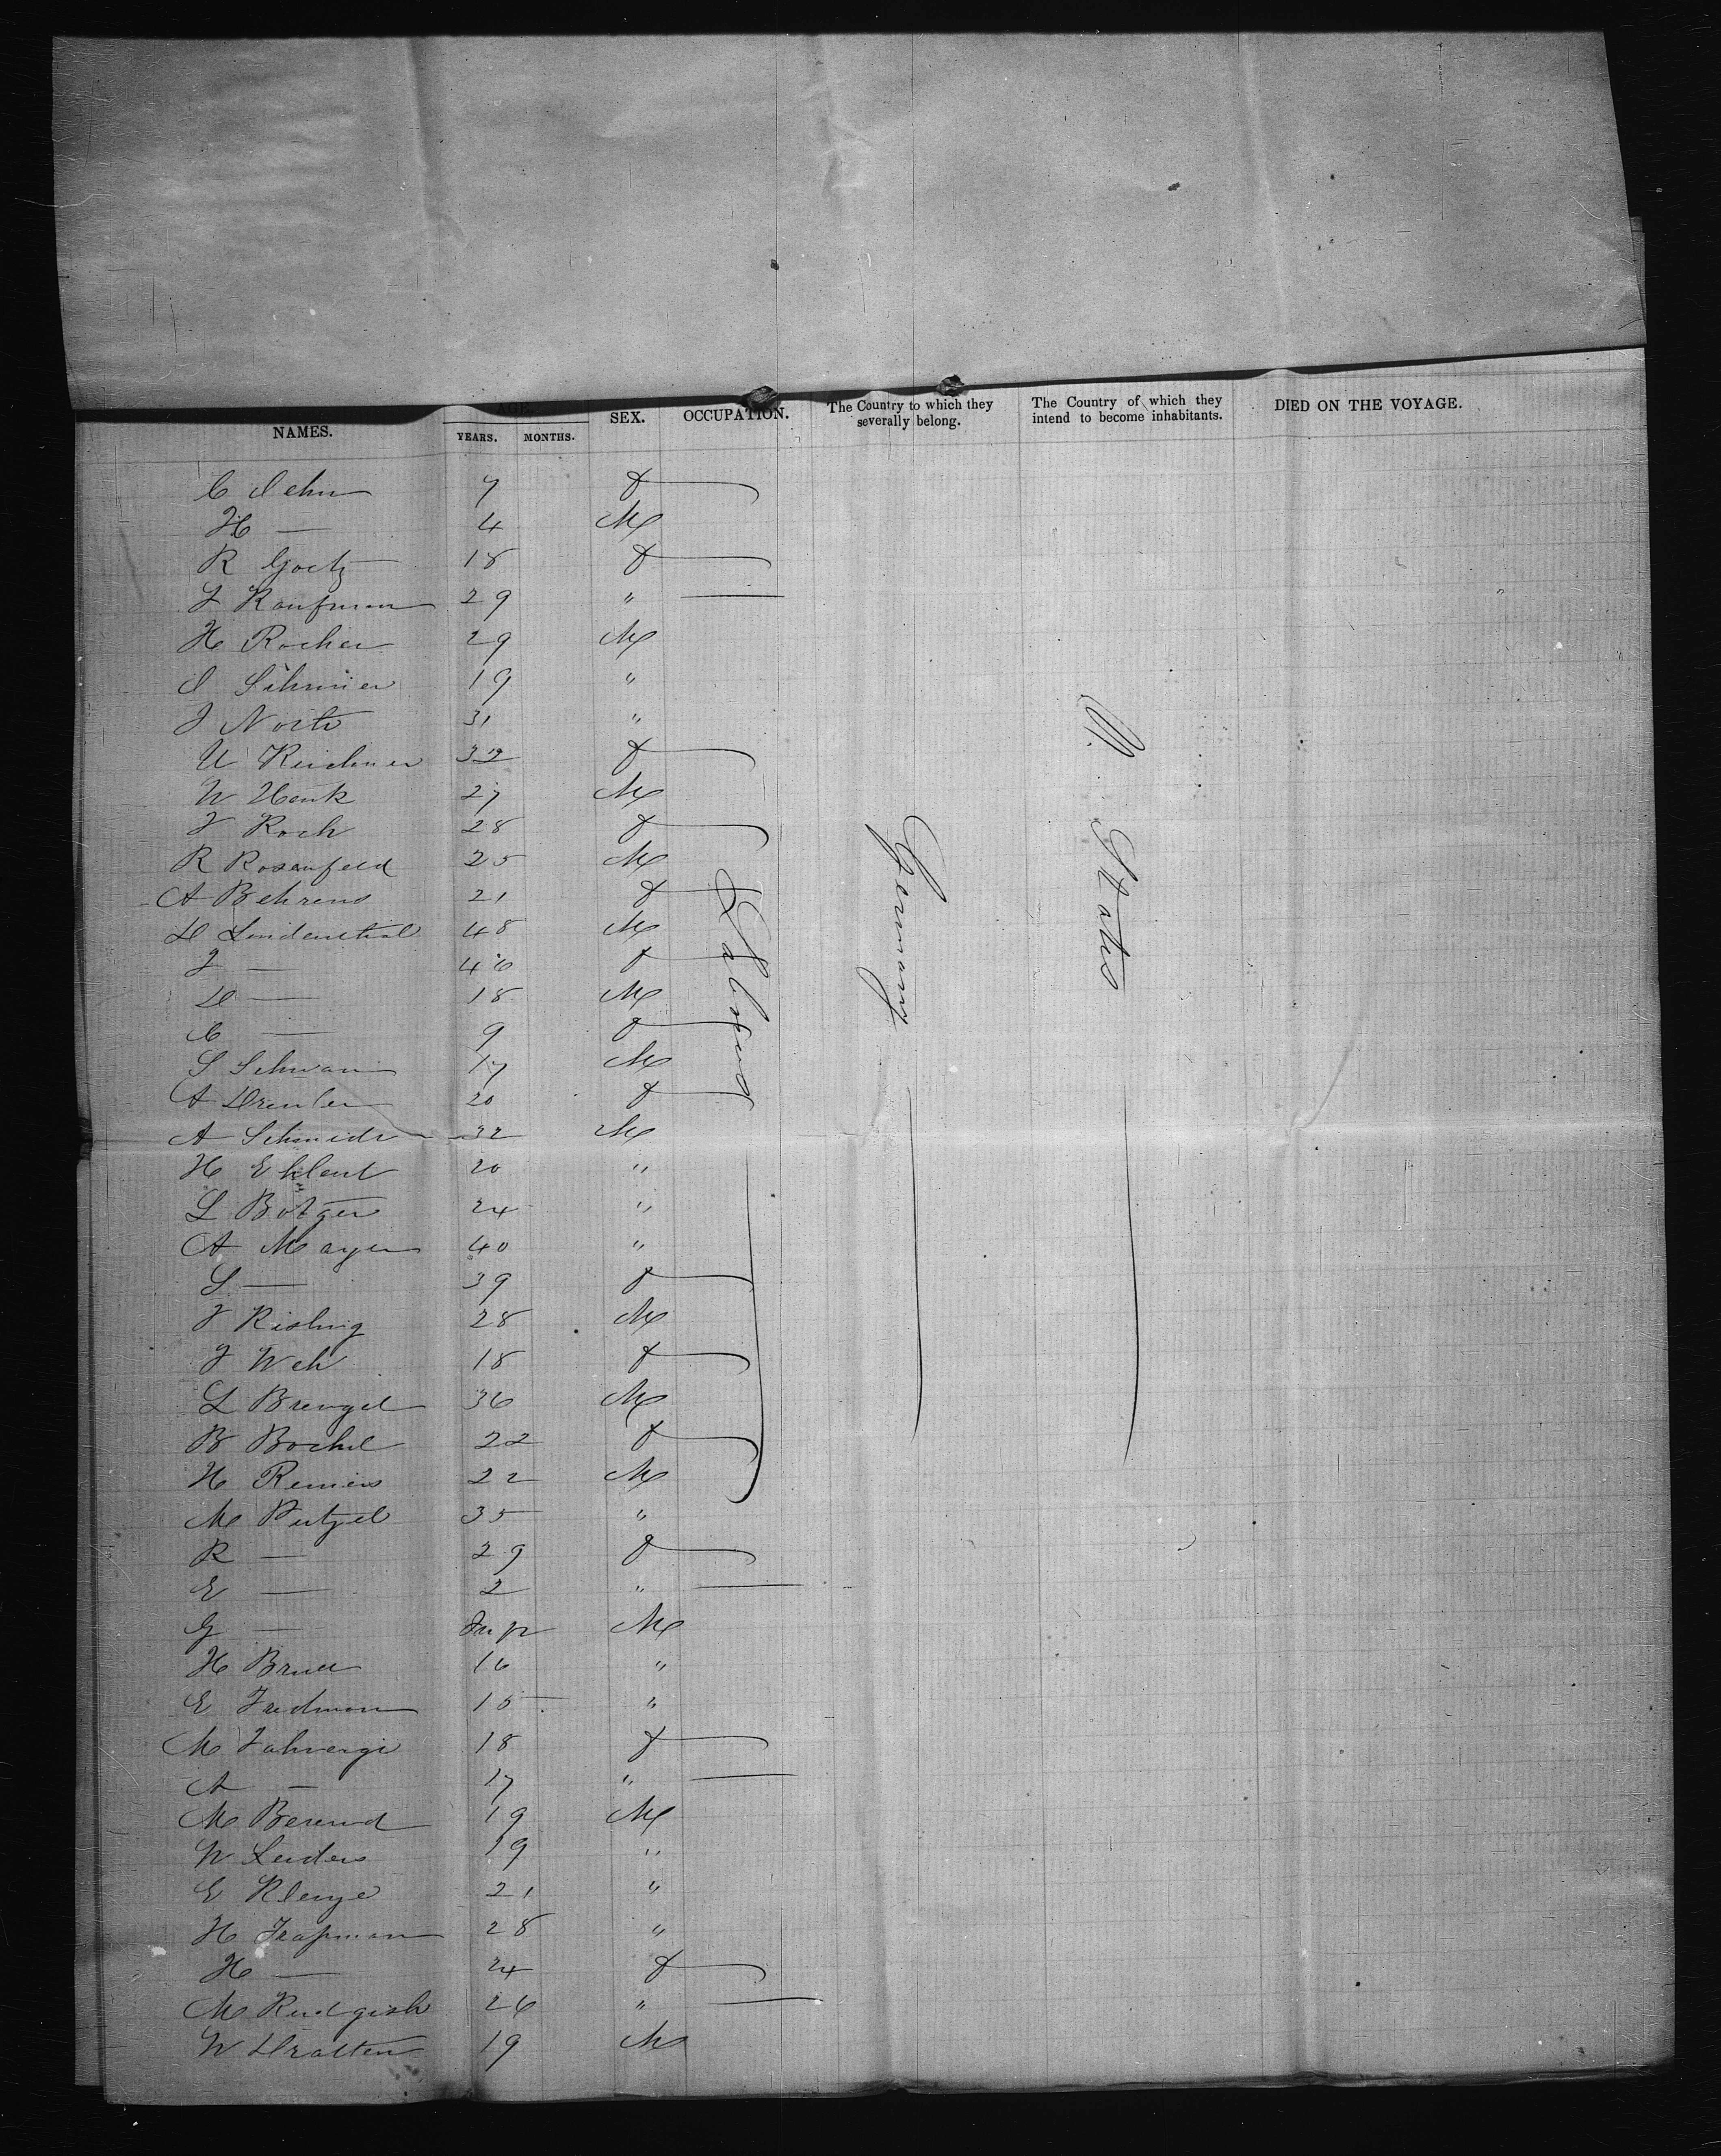 NAMES. AGE. YEARS. MONTHS. SEX. OCCUPATION. The Country to which they severally belong. The Country of which they intend to become inhabitants. DIED ON THE VOYAGE.
C 7 F
H — 4 M
R Goetz 18 F
F Kaufman 29 " —
H Rocher 29 M
S 19 "
J North 31 "
U Kirchner 32 F
W Henk 27 M
F Koch 28 F
R Rosenfeld 25 M
A Behrens 21 F
D Lindenthal 48 M
F — 46 F
D — 18 M
C — 9 F
S Schwan 17 M
A Dreuler 20 F
A Schmidt 32 M
H Eklent 20 "
L Botger 24 "
A Mayer 40 "
S — 39 F
F Risling 28 M
F Weh 18 F
L Brengel 36 M
B Bochel 22 F
H Remers 22 M
M Putzel 35 "
R — 29 F
E — 2 " —
G — Inf M
H Bruee 16 "
E Fredman 15 "
M Fahrengi 18 F
A — 17 " —
M Berend 19 M
W Leuders 19 "
E Klenze 21 "
H Trapman 28 "
H — 24 F
M Rudgish 26 " —
W Dratten 19 M
Labours
Germany
U. States